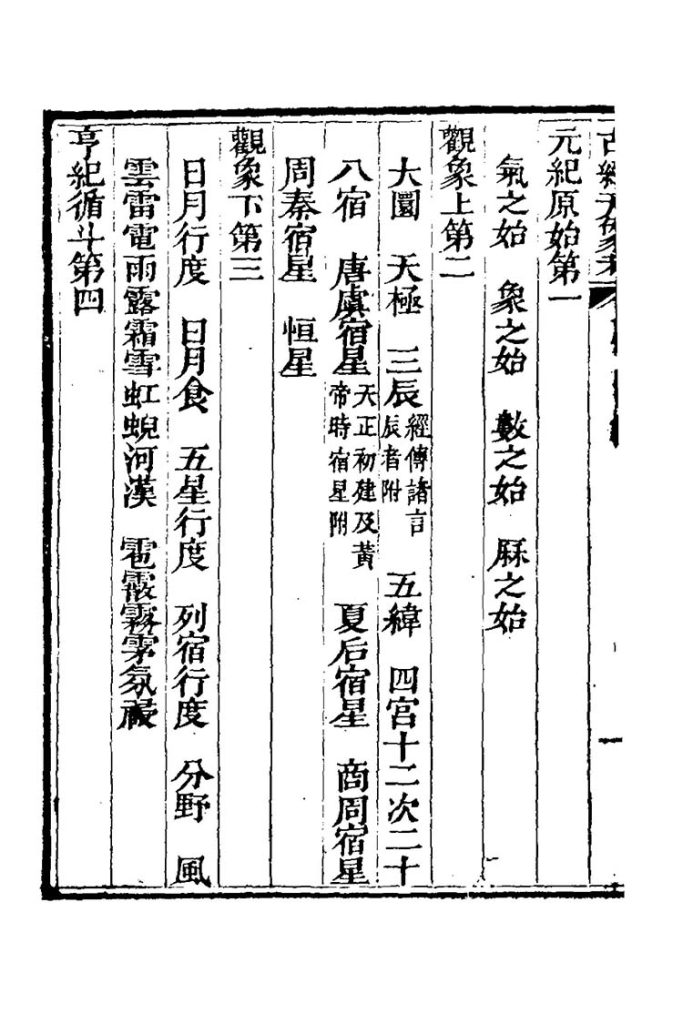 元紀原始第一
氣之始　象之始　數之始　厤之始
觀象上第二
大圜　天極　三辰　經傳諸言辰者附　五緯　四宮十二次二十
八宿　唐虞宿星　天正初建及黃帝時宿星附　夏后宿星　商周宿星
周秦宿星　恒星
觀象下第三
日月行度　日月食　五星行度　列宿行度　分野　風
雲雷電雨露霜雪虹蜺河漢　雹霰霧雺氛祲
亨紀循斗第四